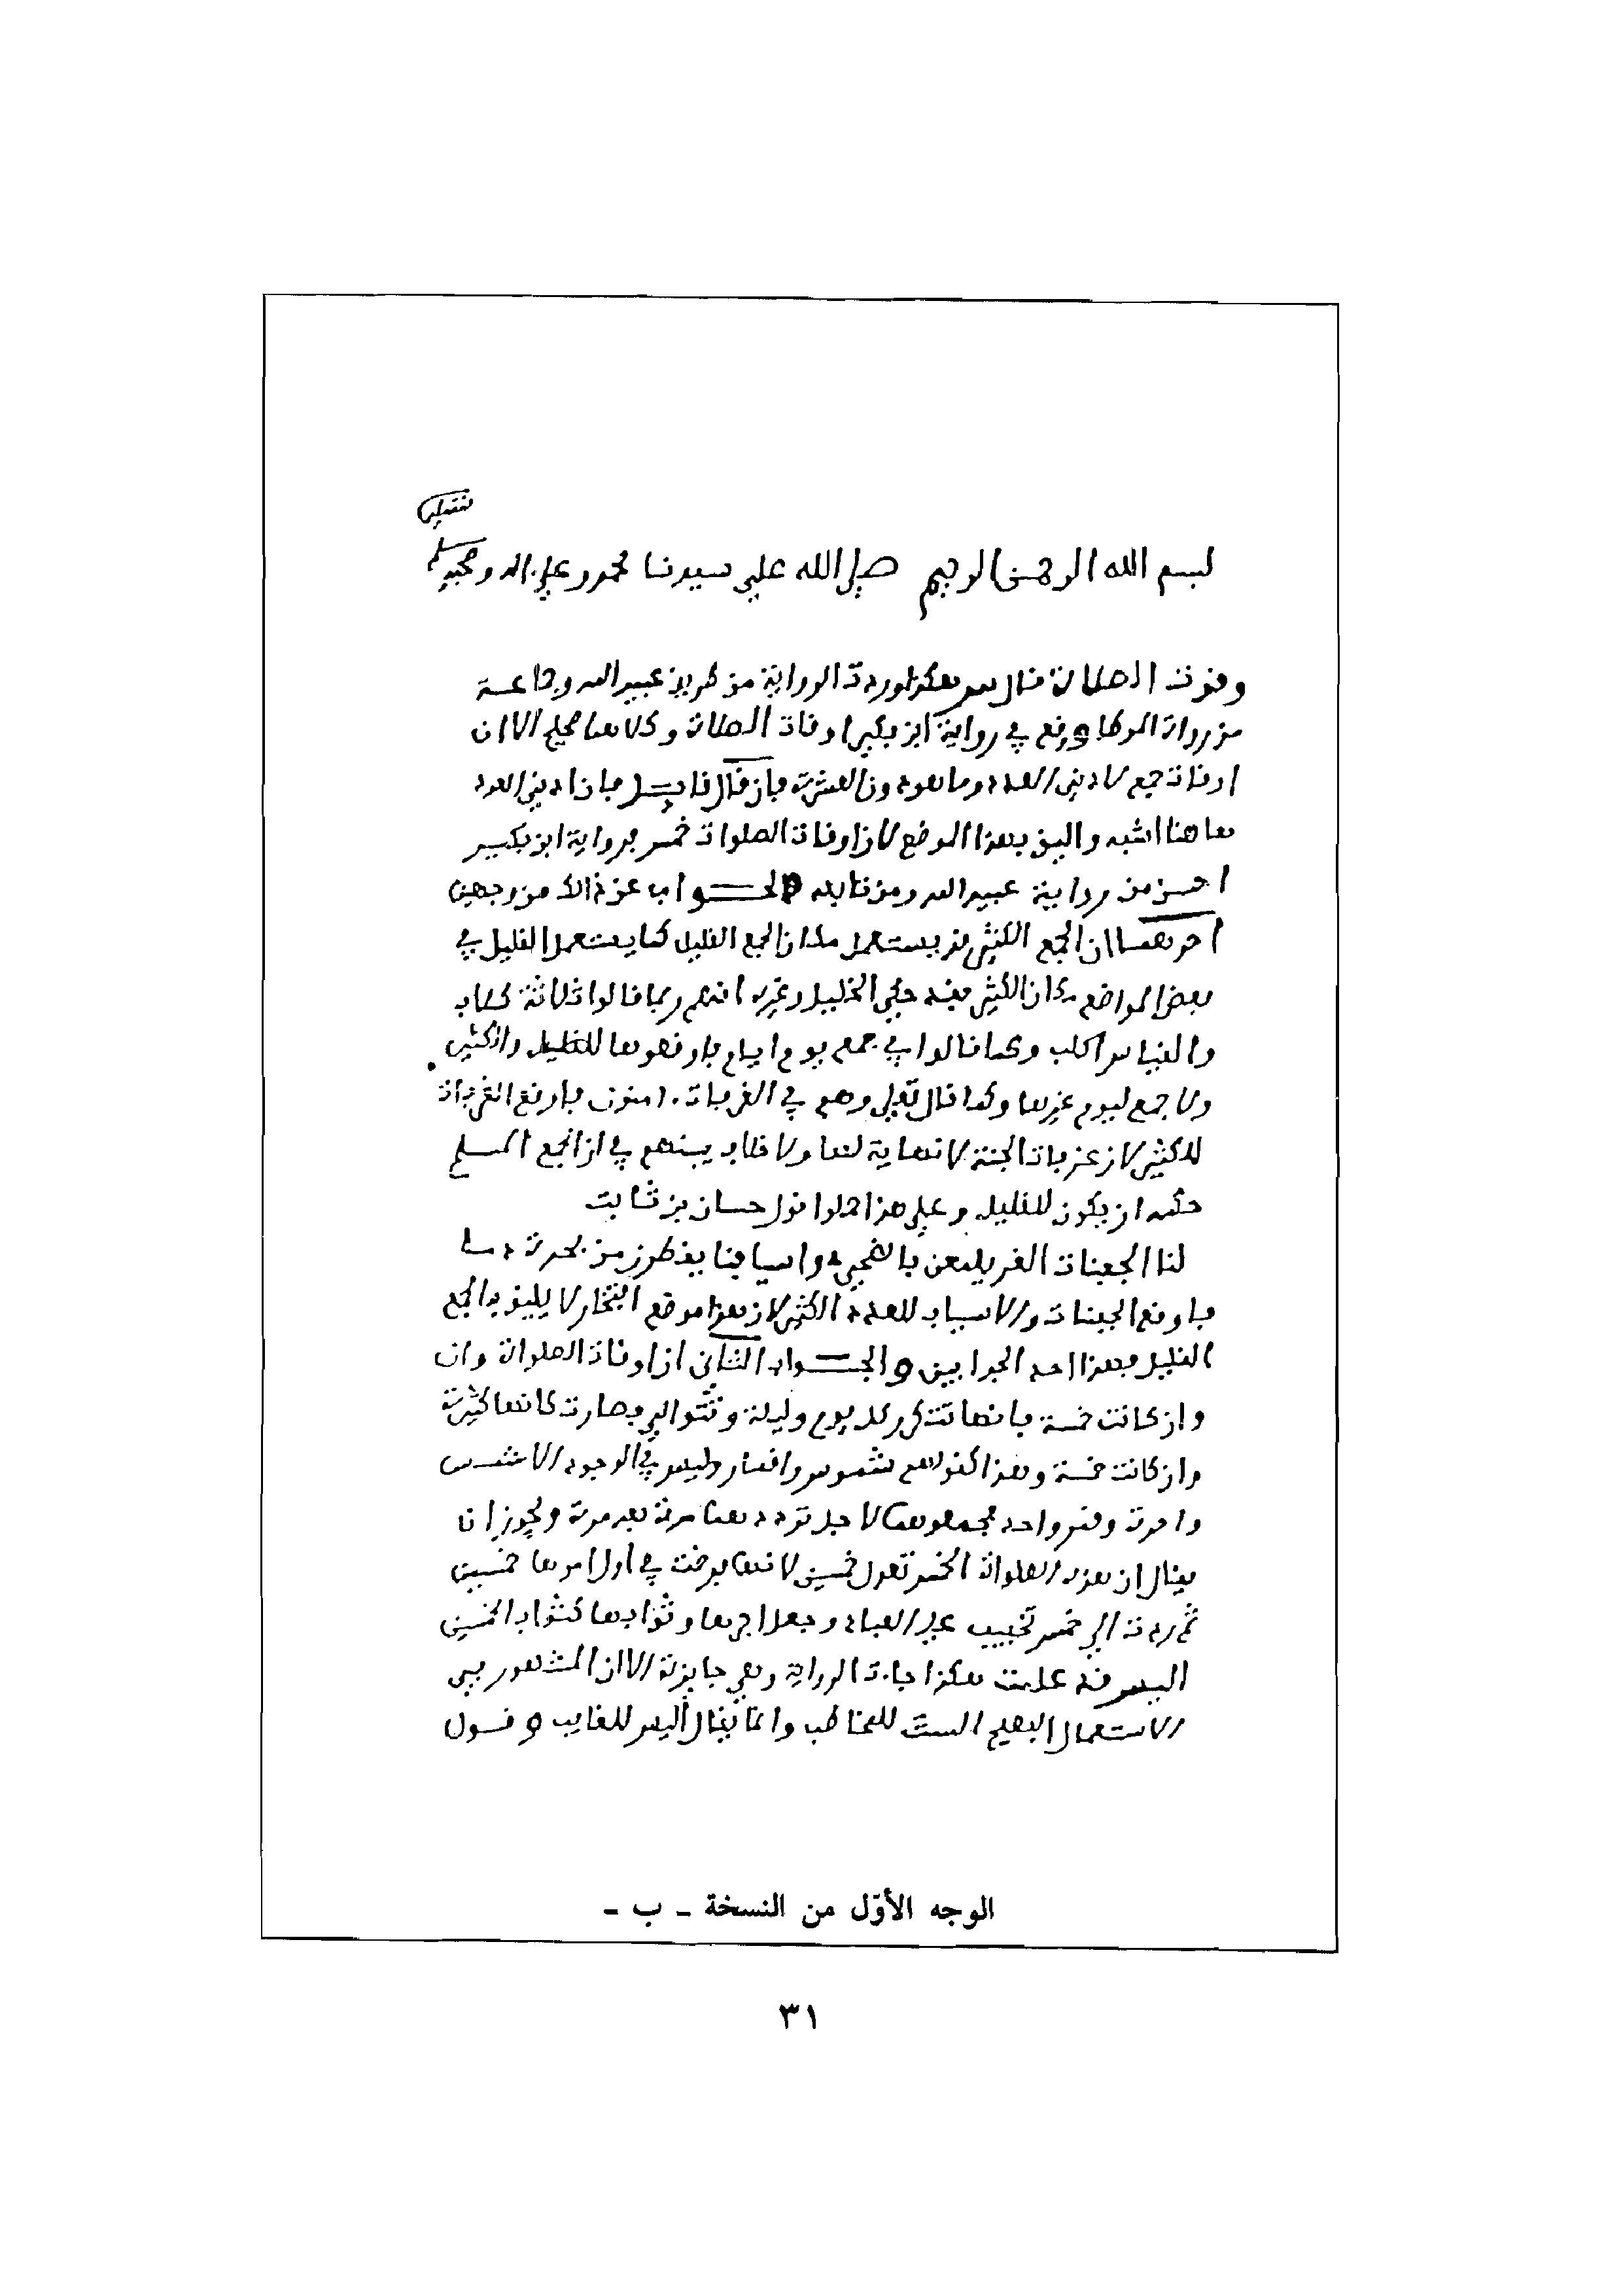 بسم الله الرحمن الرحيم صلى الله على سيدنا محمد وعلى اله وصحبه وسلم
وقوت الصلاة قال س هكذا وردة الرواية من طريق عبيد الله وجماعة
من رواة الموطا ووقع في رواية ابن بكير اوقات الصلاة وكلاهما صحيح الا ان
اوقات جمع لادنى العدد وما هو دون العشرة فان قال قايل فاذا ادنى العدد
هاهنا اشبه واليق بهذا الموضع لان اوقات الصلوات خمس فرواية ابن بكير
احسن من رواية عبيد الله ومن تابعه فالجواب عن ذالك من وجهين
احدهما ان الجمع الكثير قد يستعمل مكان الجمع القليل كما يستعمل القليل في
بعض المواضع مكان الكثير فقد حكى الخليل وغيره انهم ربما قالوا ثلاثة كلاب
والقياس اكلب وكما قالوا في جمع يوم ايام فاوقعوها للقليل والكثير
ولا جمع ليوم غيرها وكما قال تعلى وهم في الغرفات ءامنون فاوقع الغرفات
للكثير لان غرفات الجنة لا نهاية لها ولا خلاف بينهم في ان الجمع المسلم
حكمه ان يكون للقليل وعلى هذا حملوا قول حسان بن ثابت
لنا الجفنات الغر يلمعن بالضحى واسيافنا يقطرن من نجدة دما
فاوقع الجفنات والاسياف للعدد الكثير لان هذا موقع افتخار لا يليق به الجمع
القليل فهذا احد الجوابين والجواب الثاني ان اوقات الصلوات وان
وان كانت خمسة فانها تتكرر كل يوم وليلة وتتوالى فصارت كانها كثيرة
وان كانت خمسة وهذا كقولهم شموس واقمار وليس في الوجود الا شمس
واحدة وقمر واحد فجمعوهما لاجل ترددهما مرة بعد مرة ويجوز ان
يقال ان هذه الصلوات الخمس تعدل خمسين لانها فرضت في اول امرها خمسين
ثم ردت الى خمس تخفيف على العباد وجعل اجرها وثوابها كثواب الخمسين
اليس قد علمت هكذا جاءت الرواية وهي جايزة الا ان المشهور في
الاستعمال الفصيح الست للمخاطب وانما يقال اليس للغايب وقول
الوجه الأوّل من النسخة ـ ب ـ
٣١